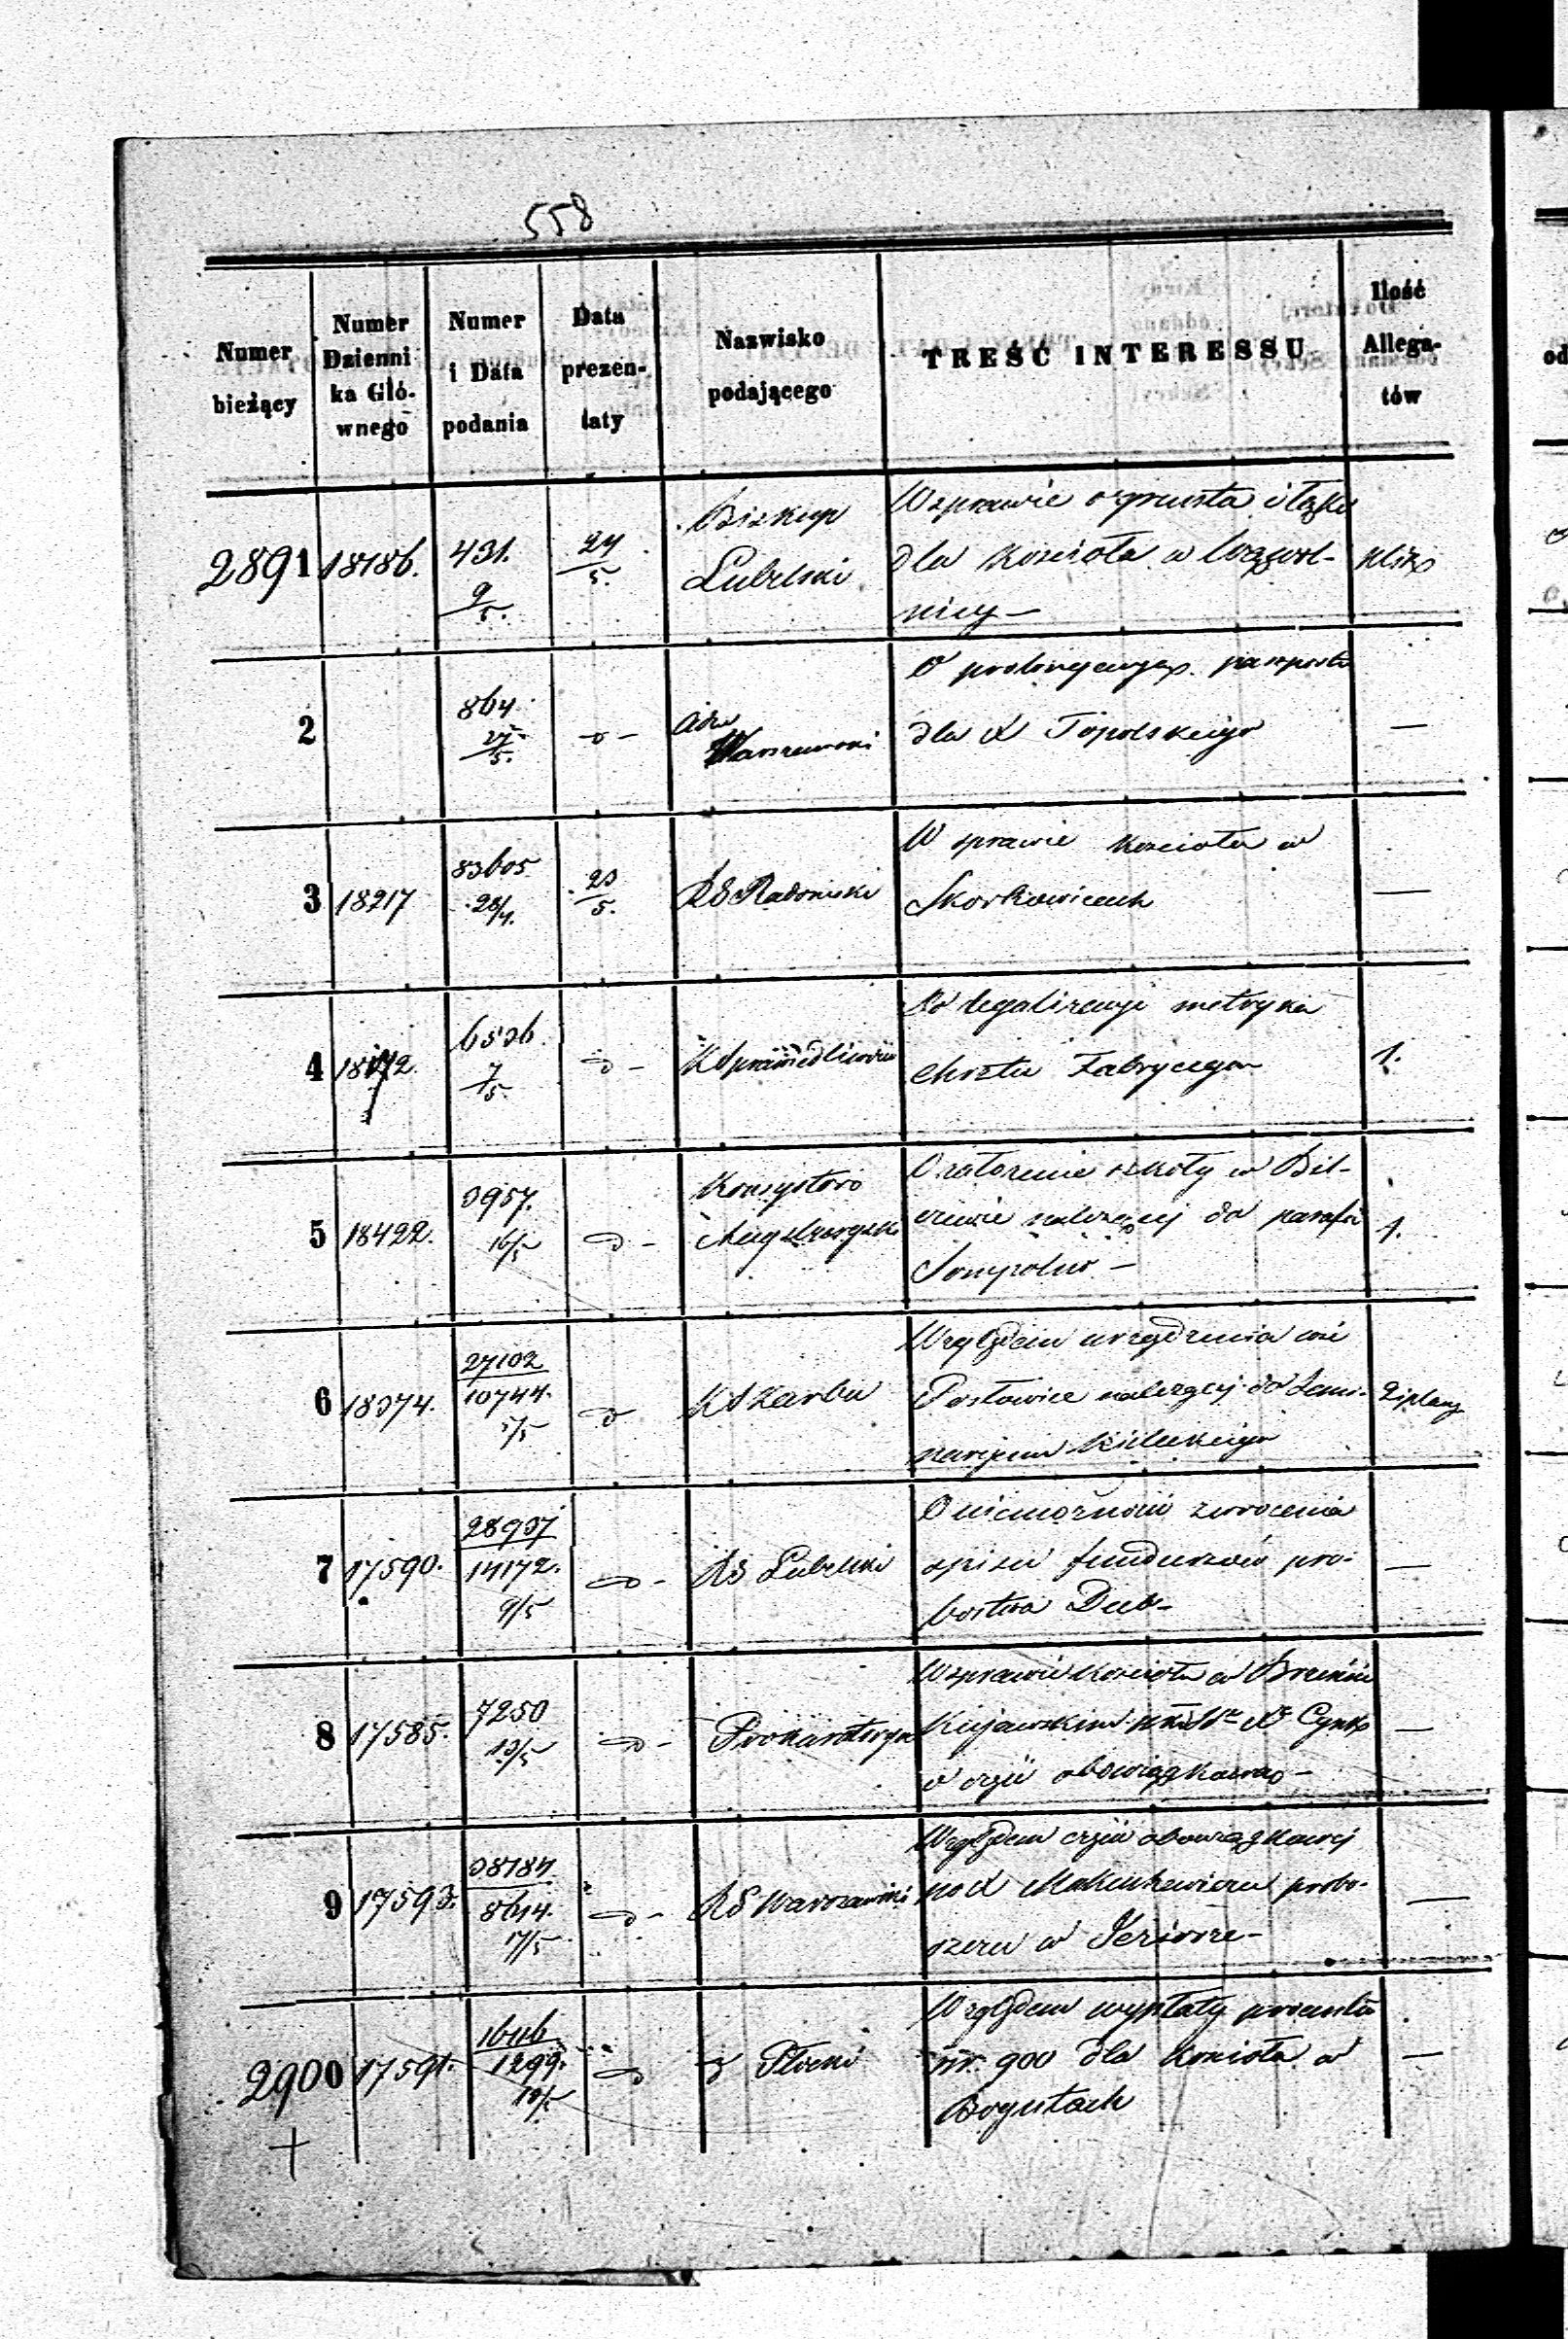 558
Numer bieżący
Numer Dzienni ka Głó- wnego
Numer i Data podania
Data prezen- taty
Nazwisko podającego
TREŚĆ INTERESSU
Ilość Allega- tów
2891 18186. 431. 9/5. 24/5. Biskup Lubelski
W sprawie o grunta i łąkę
dla kościoła w
nicy —
2 864 5. Warszawski
O prolongacyą paszportu
dla X Topolskiego —
3 18217 83605 28/4. 23/5. RG Radomski
W sprawie kościoła w
Skorkowicach —
4 6536. 7/5 KSprawiedliwości
Do legalizacyi metryka
chrztu Fabrycego 1.
5 18422. 3957. 16/5 Konsystorz Augsburgski
O założenie szkoły w Bil-
czewie należącej do parafii 1.
Sompolno —
6 18374. 27102 10744. 5/5 KSkarbu
Względem urządzenia wsi
Posłowice należącej do Semi- 2 plany
naryum Kieleckiego
7 17590. 28937 14172. 9/5 RG Lubelski
O niemożności zwrócenia
spisu funduszów pro- —
bostwa Dub-
8 17585. 7250 13/5 Prokuratorya
W sprawie kościoła w Brześciu
Kujawskim
o czyn. obowiązkowe —
9 17593. 38184 8614. 17/5 RG Warszawski
Względem obowiązkowej
probo- —
szczu w Jeziorze —
2900 17591. 16116 1299. 10/5 Płocki
Względem wypłaty procentu
900 dla kościoła w —
Bogutach